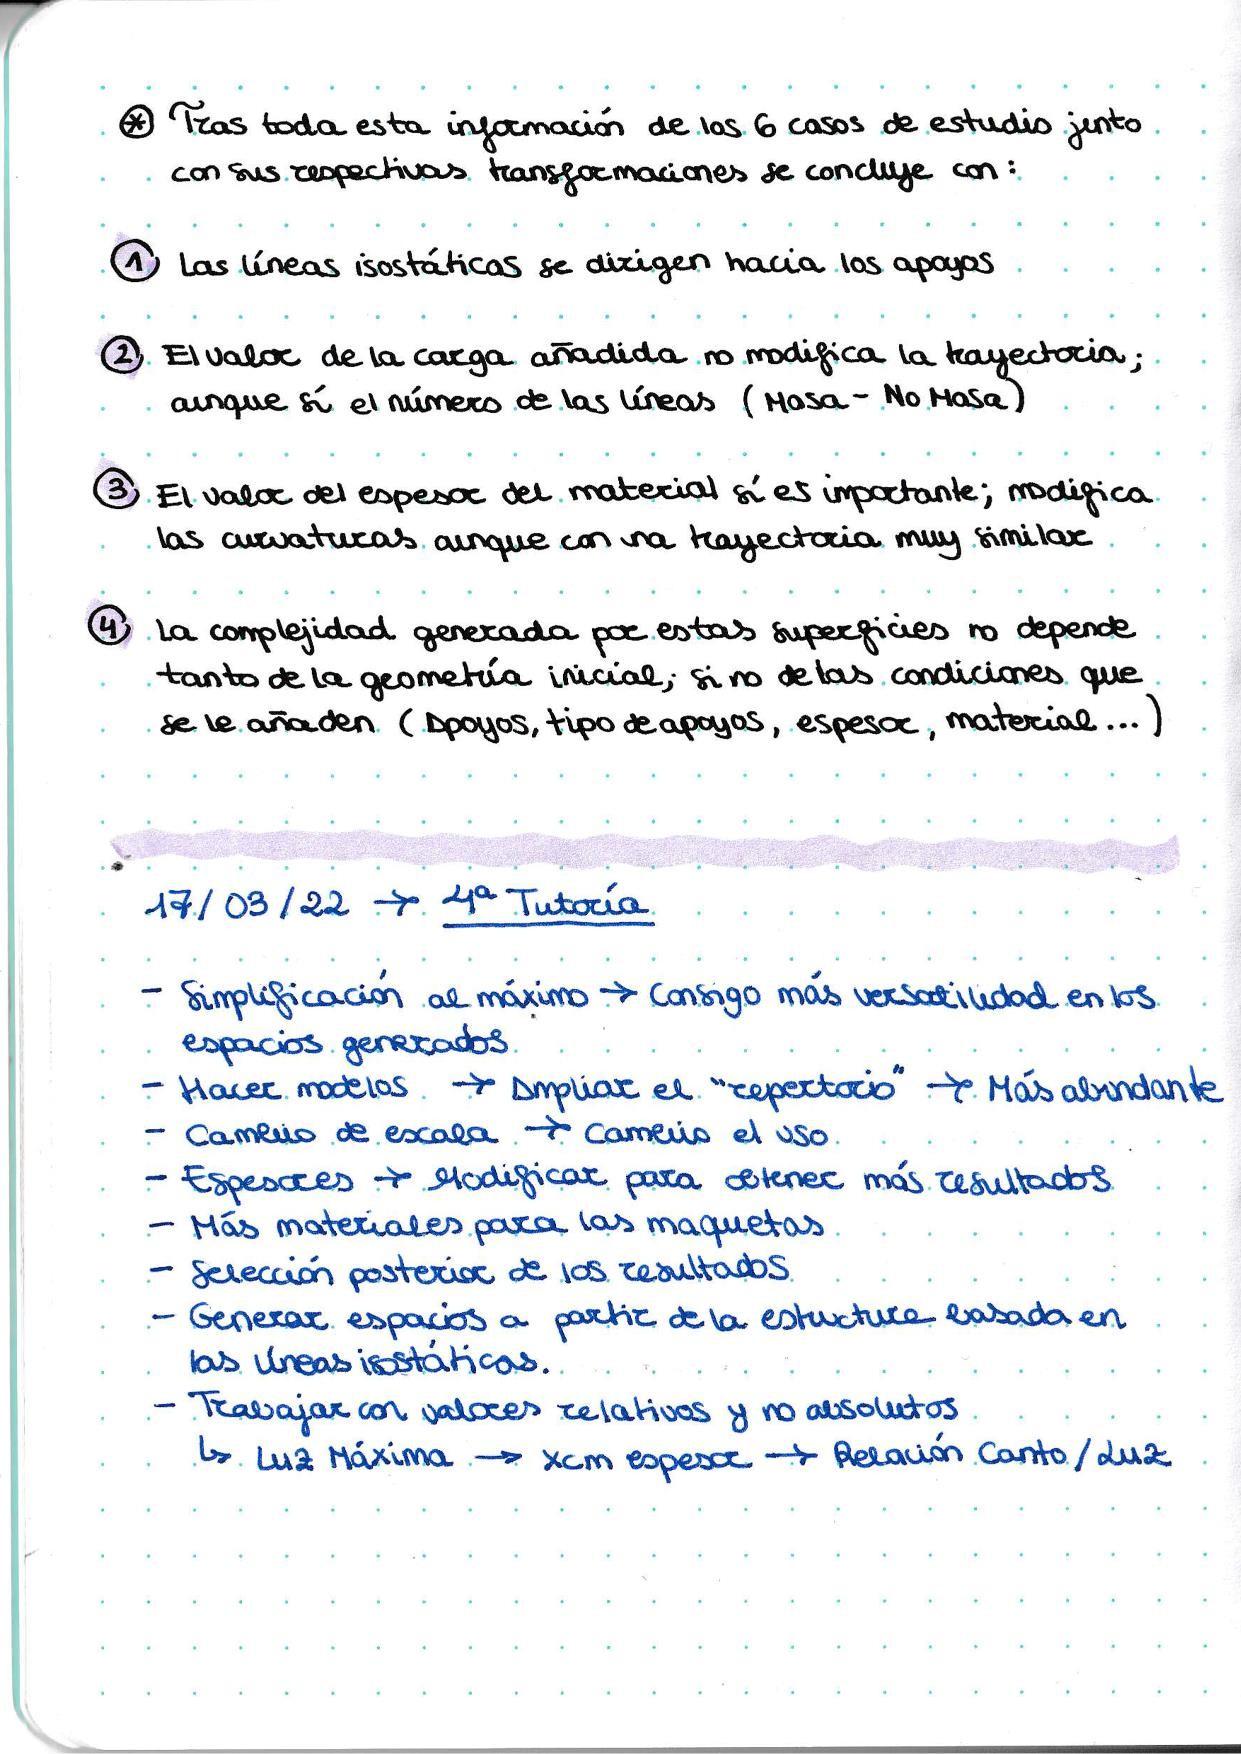 ⊛ Tras toda esta información de los 6 casos de estudio junto
con sus respectivas transformaciones se concluye con:
① Las líneas isostáticas se dirigen hacia los apoyos
② El valor de la carga añadida no modifica la trayectoria;
aunque sí el número de las líneas (Masa - No Masa)
③ El valor del espesor del material sí es importante; modifica
las curvaturas aunque con una trayectoria muy similar
④ La complejidad generada por estas superficies no depende
tanto de la geometría inicial; si no de las condiciones que
se le añaden (Apoyos, tipo de apoyos, espesor, material...)
17/03/22 → 4ª Tutoría
- Simplificación al máximo → Consigo más versatilidad en los
espacios generados
- Hacer modelos → Ampliar el "repertorio" → Más abundante
- Cambio de escala → Cambio el uso
- Espesores → Modificar para obtener más resultados
- Más materiales para las maquetas
- Selección posterior de los resultados
- Generar espacios a partir de la estructura basada en
las líneas isostáticas.
- Trabajar con valores relativos y no absolutos
↳ Luz Máxima → xcm espesor → Relación Canto/Luz